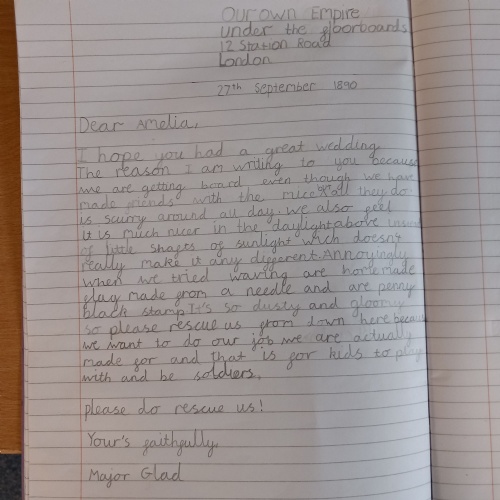 Our own Empire
under the floorboards
12 Station Road
London
27th September 1890
Dear Amelia,
I hope you had a great wedding.
The reason I am writing to you because
we are getting board even though we have
made friends with the mice all they do
is scurry around all day. we also feel
it is much nicer in the daylight above
of little shapes of sunlight wich doesn't
really make it any different. Annoyingly
when we tried waving are homemade
flag made from a needle and are penny
black stamp It's so dusty and gloomy
so please rescue us from down here because
we want to do our job we are actually
made for and that is for kids to play
with and be soldiers.
please do rescue us!
Your's faithfully,
Major Glad